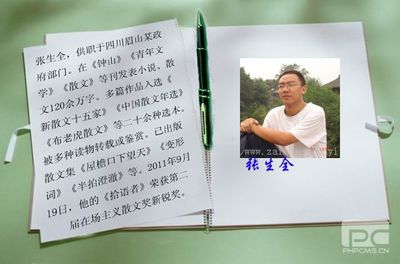 张生全，供职于四川眉山某政
府部门。在《钟山》《青年文
学》《散文》等刊发表小说、散
文120余万字。多篇作品入选《
新散文十五家》《中国散文年选》
《布老虎散文》等二十余种选本。
被多种读物转载或鉴赏。已出版
散文集《屋檐口下望天》《变形
词》《半拍澄澈》等。2011年9月
19日，他的《拾语者》荣获第二
届在场主义散文奖新锐奖。
张生全
PHPCMS.CN